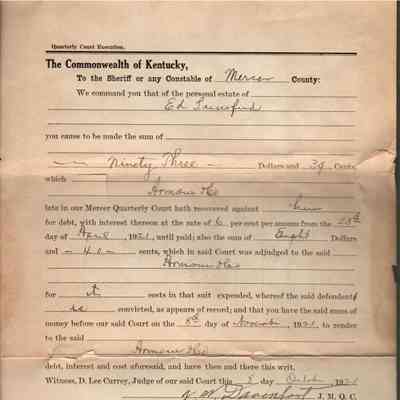 Quarterly Court Execution.
The Commonwealth of Kentucky,
To the Sheriff or any Constable of Mercer County:
We command you that of the personal estate of
Ed
you cause to be made the sum of
Ninety Three Dollars and 39 Cents
which
Armour & Co
late in our Mercer Quarterly Court hath recovered against him
for debt, with interest thereon at the rate of 6 per cent per annum from the 28th
day of April, 1921, until paid; also the sum of Eight Dollars
and - 40 - cents, which in said Court was adjudged to the said
Armour & Co
for it costs in that suit expended, whereof the said defendant
is convicted, as appears of record; and that you have the said sums of
money before our said Court on the 8th day of November, 1921, to render
to the said
Armour & Co
debt, interest and cost aforesaid, and have then and there this writ.
Witness, D. Lee Currey, Judge of our said Court this 8 day October 1921
Davenport J. M. Q. C.